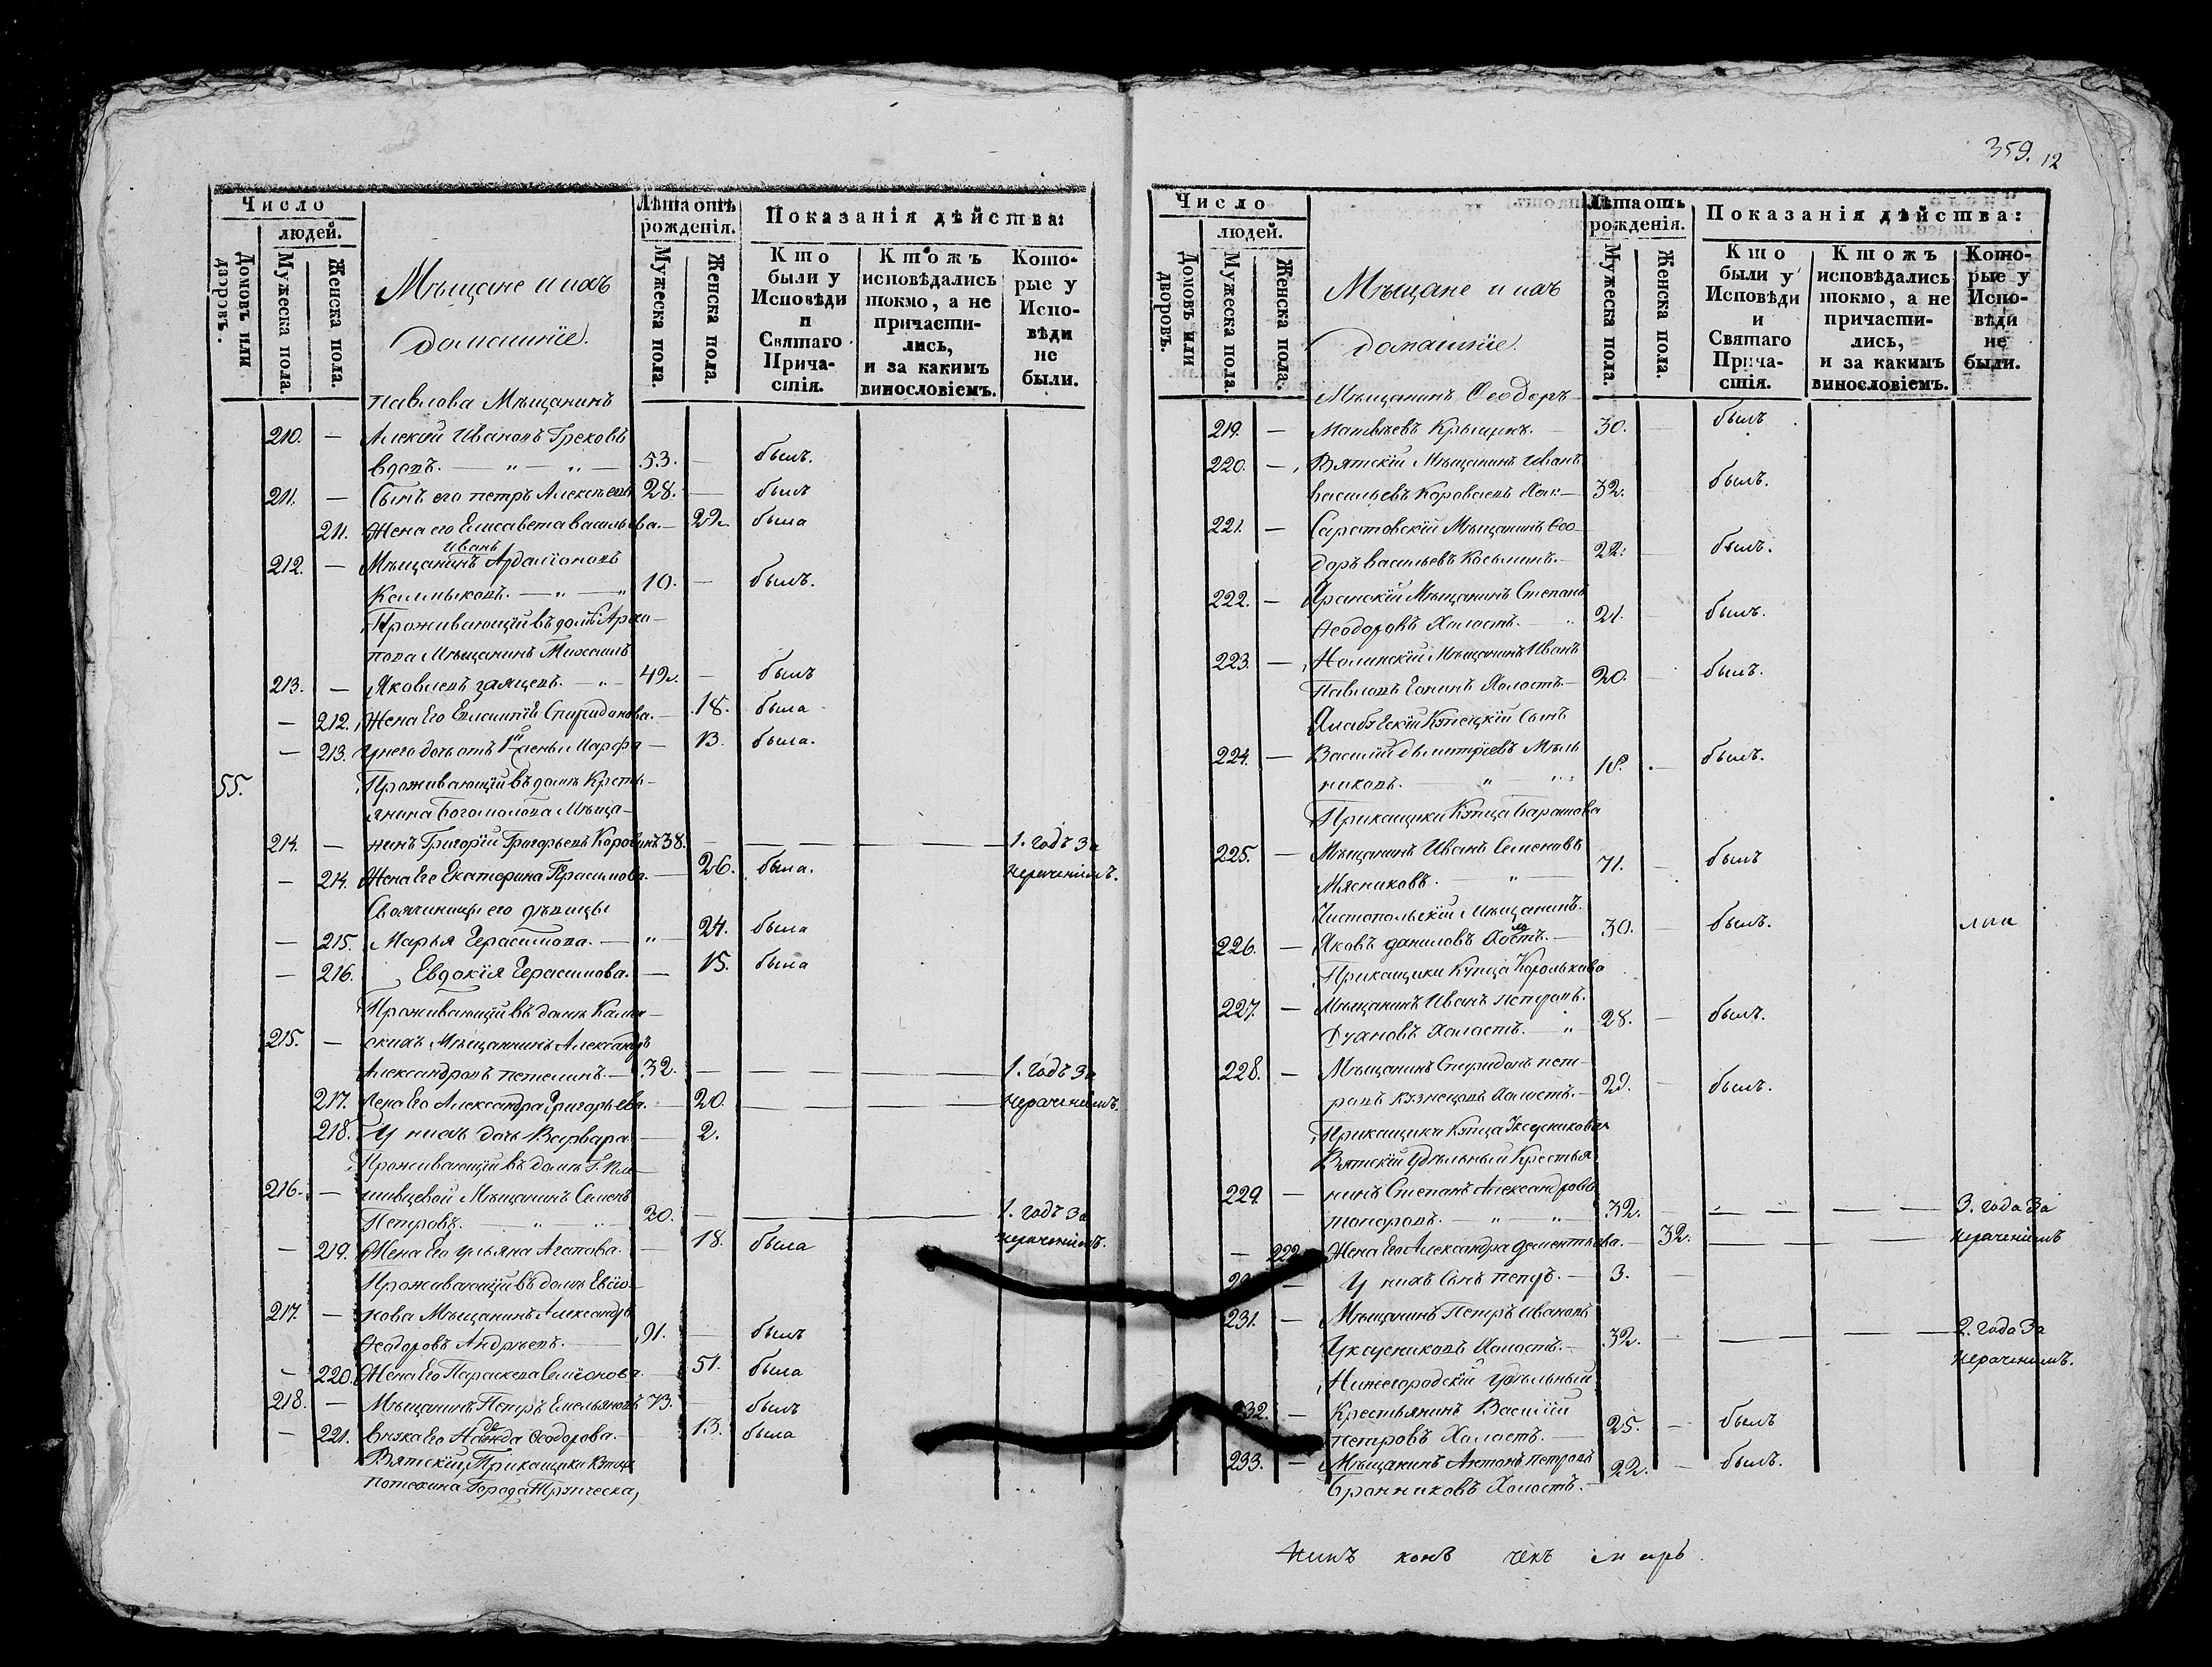 359. 12
Число
людей.
Домовъ или дворовъ.
Мужеска пола.
Женска пола.
Мѣщане и ихъ
домашніе.
Лѣта отъ рожденія.
Мужеска пола.
Женска пола.
Показанія дѣйства:
Кто были у Исповѣди и Святаго Причастія.
Ктожъ исповѣдались токмо, а не причастились, и за какимъ винословіемъ.
Которые у Исповѣди не были.
павлова Мѣщанинъ
210. — Алексѣй Ивановъ Грековъ
вдовъ. — „ — „ — 53. — былъ.
211. — Сынъ его петръ Алексѣевъ 28. — былъ
211. Жена его Елисавета васильева. — 22. была
Иванъ
212. — Мѣщанинъ Ардаліоновъ
Калмыковъ. — „ — „ 10. — былъ.
Проживающій въ домѣ Архи—
пова Мѣщанинъ Михаилъ
213. — Яковлевъ заяцевъ. — „ — 49. — былъ
— 212. Жена Его Евлампія Спиридонова. — 18. была
— 213. У него дочь отъ 1й жены Марфа — 13. была.
55. Проживающій въ домѣ Кресть—
янина Богомолова Мѣща—
214. — нинъ Григорій Григорьевъ Коровинъ 38. — — — — 1. годъ За
— 214. Жена Его Екатерина Герасимова. — 26. была. нераченіемъ.
Своячиницы его дѣвицы
— 215. Марья Герасимова. — „ — 24. была
— 216. Евдокія Герасимова. — 15. была
Проживающій въ домѣ
215. — скихъ Мѣщанинъ Александръ
Александровъ петелинъ. — 32. — — — — 1. годъ За
217. Жена Его Александра Григорьева. — 20. — — — нераченіемъ.
218. У нихъ дочь Варвара — 2.
Проживающій въ домѣ Г. Пле—
216. — шивцевой Мѣщанинъ Семенъ
Петровъ. — „ — „ 20. — — — — 1. годъ За
— 219. Жена Его ульяна Агапова. — 18. была нераченіемъ.
Проживающій въ домѣ Евсіо—
217. — нова Мѣщанинъ Александръ
Ѳеодоровъ Андреевъ. — 91. — былъ
— 220. Жена Его Параскева Семіонова. 51. была
218. — Мѣщанинъ Петръ Емельяновъ 73. — былъ
— 221. внука Его Надежда Ѳеодорова. — 13. была
Вятскій, Прикащики Купца
потехина Города
Число
людей.
Домовъ или дворовъ.
Мужеска пола.
Женска пола.
Мѣщане и ихъ
домашніе.
Лѣта отъ рожденія.
Мужеска пола.
Женска пола.
Показанія дѣйства:
Кто были у Исповѣди и Святаго Причастія.
Ктожъ исповѣдались токмо, а не причастились, и за какимъ винословіемъ.
Которые у Исповѣди не были.
Мѣщанинъ Ѳеодоръ
219. — Матвѣевъ — 30. былъ
220. — Вятскій Мѣщанинъ Иванъ
васильевъ Короваевъ Хол: — 32. былъ.
221. — Саратовскій Мѣщанинъ Ѳео—
доръ васильевъ Косьминъ. — 22. — былъ.
222. — Яранскій Мѣщанинъ Степанъ
Ѳеодоровъ Холостъ. — „ 21. — былъ.
223. — Нолинскій Мѣщанинъ Иванъ
Павловъ Холостъ. — 20. — былъ.
Купецкій Сынъ
224. — Василій дмитріевъ Мѣль
никовъ. — „ — „ 18. — былъ.
Прикащики Купца Барашова
225. — Мѣщанинъ Иванъ Семеновъ
Мясниковъ. — „ — 71. — былъ
Чистопольскій Мѣщанинъ.
226. — Яковъ даниловъ Холостъ. — 30. — былъ.
Прикащики Купца Королькова
227. — Мѣщанинъ Иванъ петровъ.
Духновъ Холостъ. — „ 28. — былъ.
228. — Мѣщанинъ Спиридонъ пет—
ровъ кузнецовъ Холостъ. — 29. — былъ.
Прикащики Купца Уксусникова
Вятскій Удѣльный Крестья
229. — нинъ Степанъ Александровъ
топоровъ. — „ — „ — 32. — — — — 3. года За
— 222. Жена Его Александра дементьева. — 32. — — — нераченіемъ
— У нихъ Сынъ петръ. — 3. —
231. — Мѣщанинъ Петръ Ивановъ
Уксусниковъ Холостъ. — 32. — — — — 2. года За
нераченіемъ.
Нижегородскій Удѣльный
232. — Крестьянинъ Василій
петровъ Холостъ. — 25. — былъ
233. — Мѣщанинъ Антонъ петровъ 22. — былъ.
Бронниковъ Холостъ. —